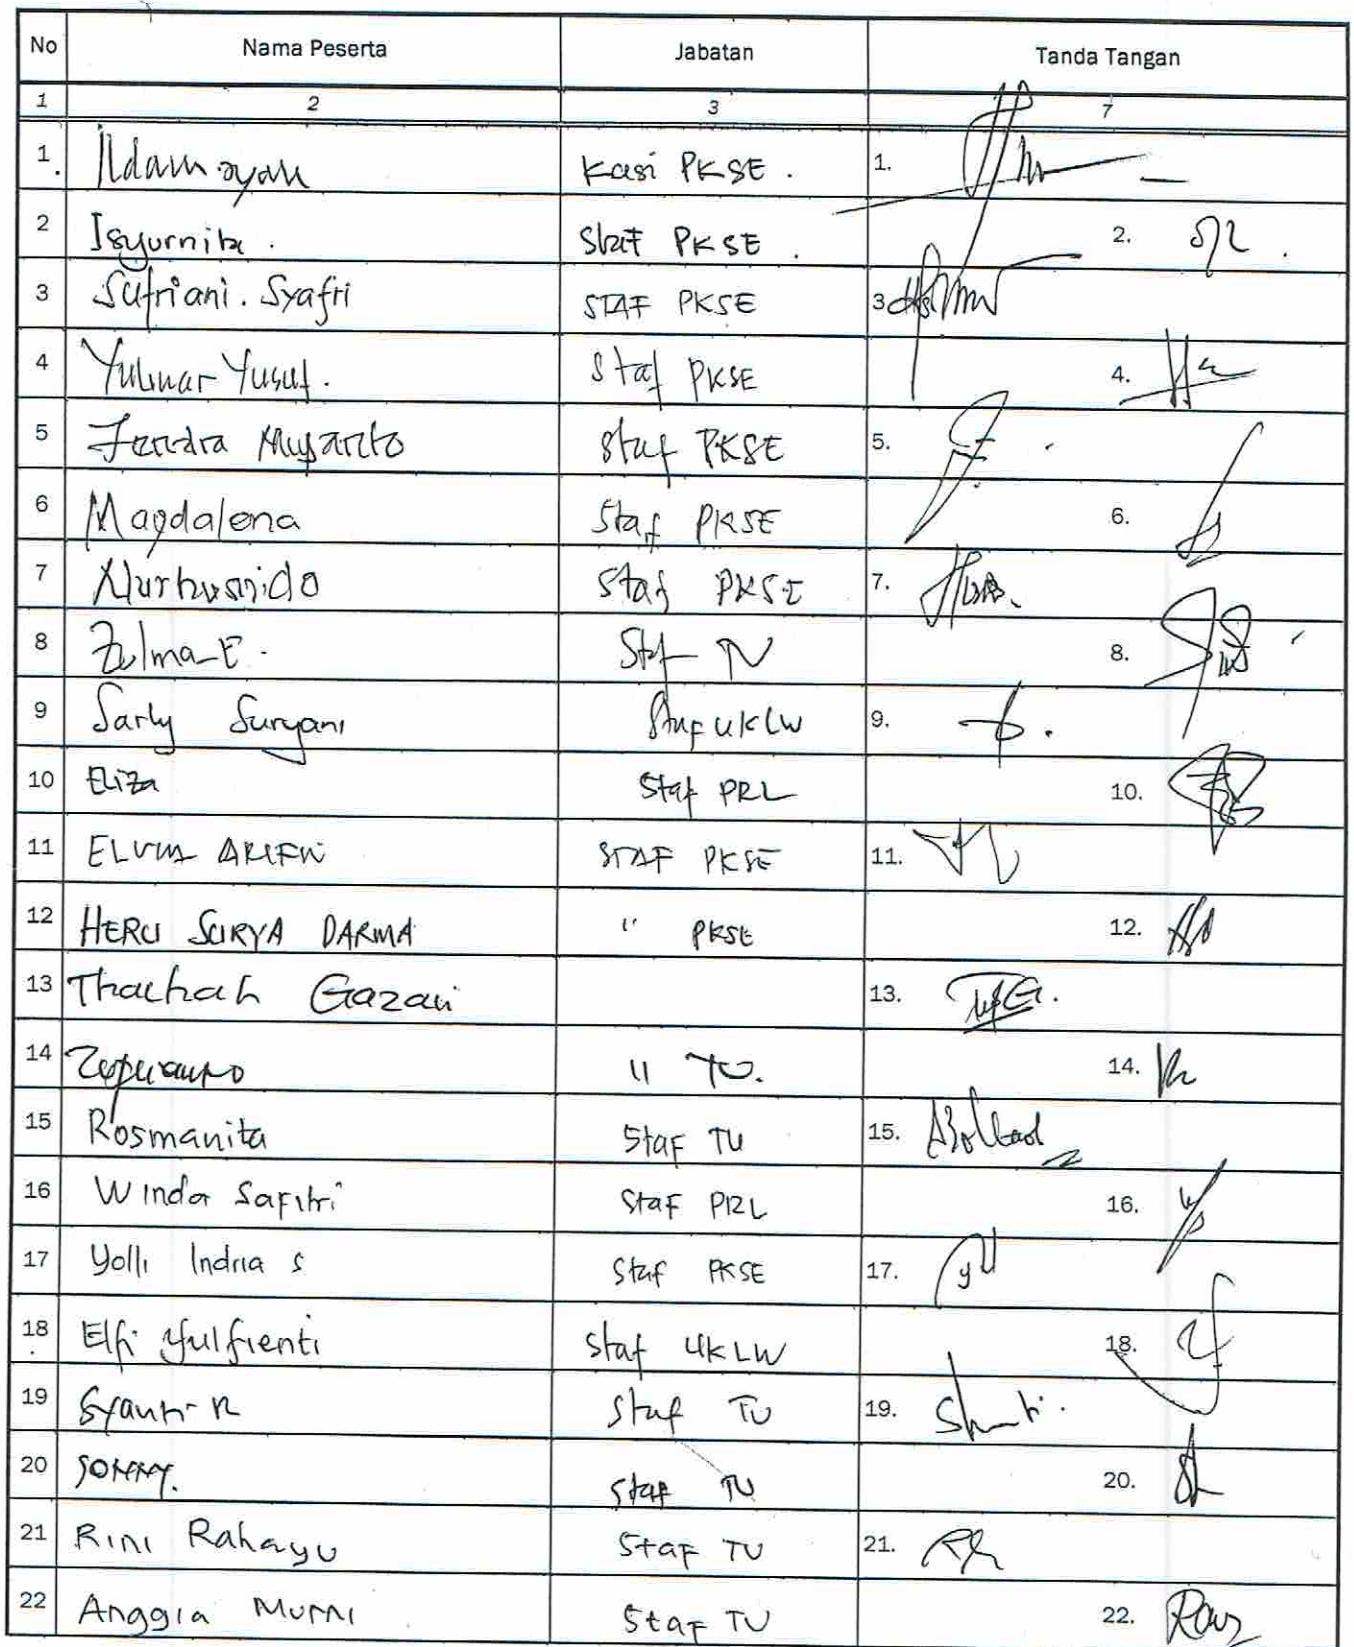 No Nama Peserta Jabatan Tanda Tangan
1 2 3 7
1. Kasi PKSE . 1.
2 Isyurnita . Staf PKSE . 2.
3 Sufriani . Syafri STAF PKSE 3
4 Yulinar Yusuf . Staf PKSE 4.
5 Staf PKSE 5.
6 Magdalena Staf PKSE 6.
7 Staf PKSE 7.
8 Zulma E . Staf TU 8.
9 Sarly Suryani Staf UKLW 9.
10 Eliza Staf PRL 10.
11 STAF PKSE 11.
12 HERU SURYA DARMA " PKSE 12.
13 13.
14 " TU. 14.
15 Rosmanita Staf TU 15.
16 Winda Safitri Staf PRL 16.
17 Yolli Indria S Staf PKSE 17.
18 . Elfi Yulfienti Staf UKLW 18.
19 Staf TU 19.
20 Staf TU 20.
21 Rini Rahayu Staf TU 21.
22 Anggia Murni Staf TU 22.